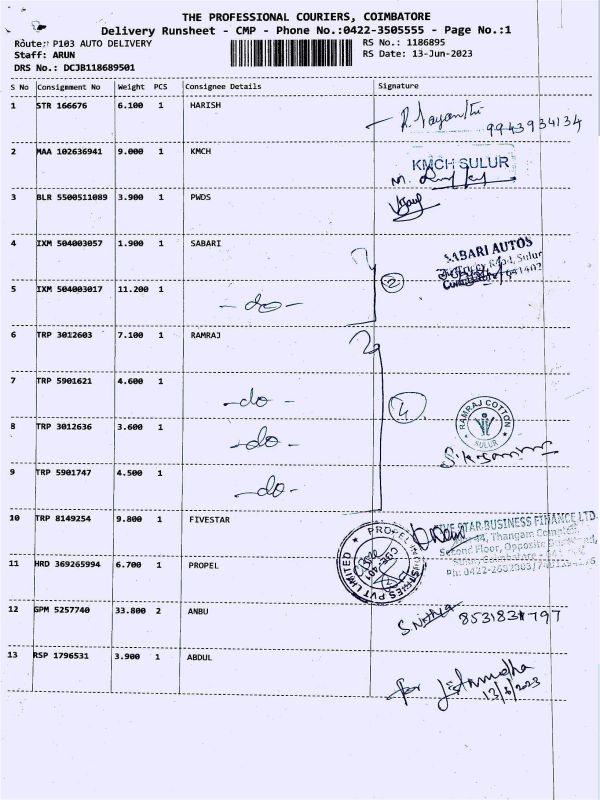 THE PROFESSIONAL COURIERS, COIMBATORE
Delivery Runsheet - CMP - Phone No.:0422-3505555 - Page No.:1
Route: P103 AUTO DELIVERY RS No.: 1186895
Staff: ARUN RS Date: 13-Jun-2023
DRS No.: DCJB118689501
S No Consignment No Weight PCS Consignee Details Signature
1 STR 166676 6.100 1 HARISH
R. Jayanthi
9943934134
2 MAA 102636941 9.000 1 KMCH
KMCH SULUR
3 BLR 5500511089 3.900 1 PWDS
4 IXM 504003057 1.900 1 SABARI
SABARI AUTOS
Road, Sulur
641402
5 IXM 504003017 11.200 1
-do-
2
6 TRP 3012603 7.100 1 RAMRAJ
7 TRP 5901621 4.600 1
-do-
4
8 TRP 3012636 3.600 1
-do-
RAMRAJ COTTON
SULUR
9 TRP 5901747 4.500 1
-do-
10 TRP 8149254 9.800 1 FIVESTAR
STAR BUSINESS FINANCE LTD.
44, Thangam Complex
Second Floor, Opposite
11 HRD 369265994 6.700 1 PROPEL
PROPEL INDUSTRIES PVT LIMITED
12 GPM 5257740 33.800 2 ANBU
13 RSP 1796531 3.900 1 ABDUL
for
13/6/2023